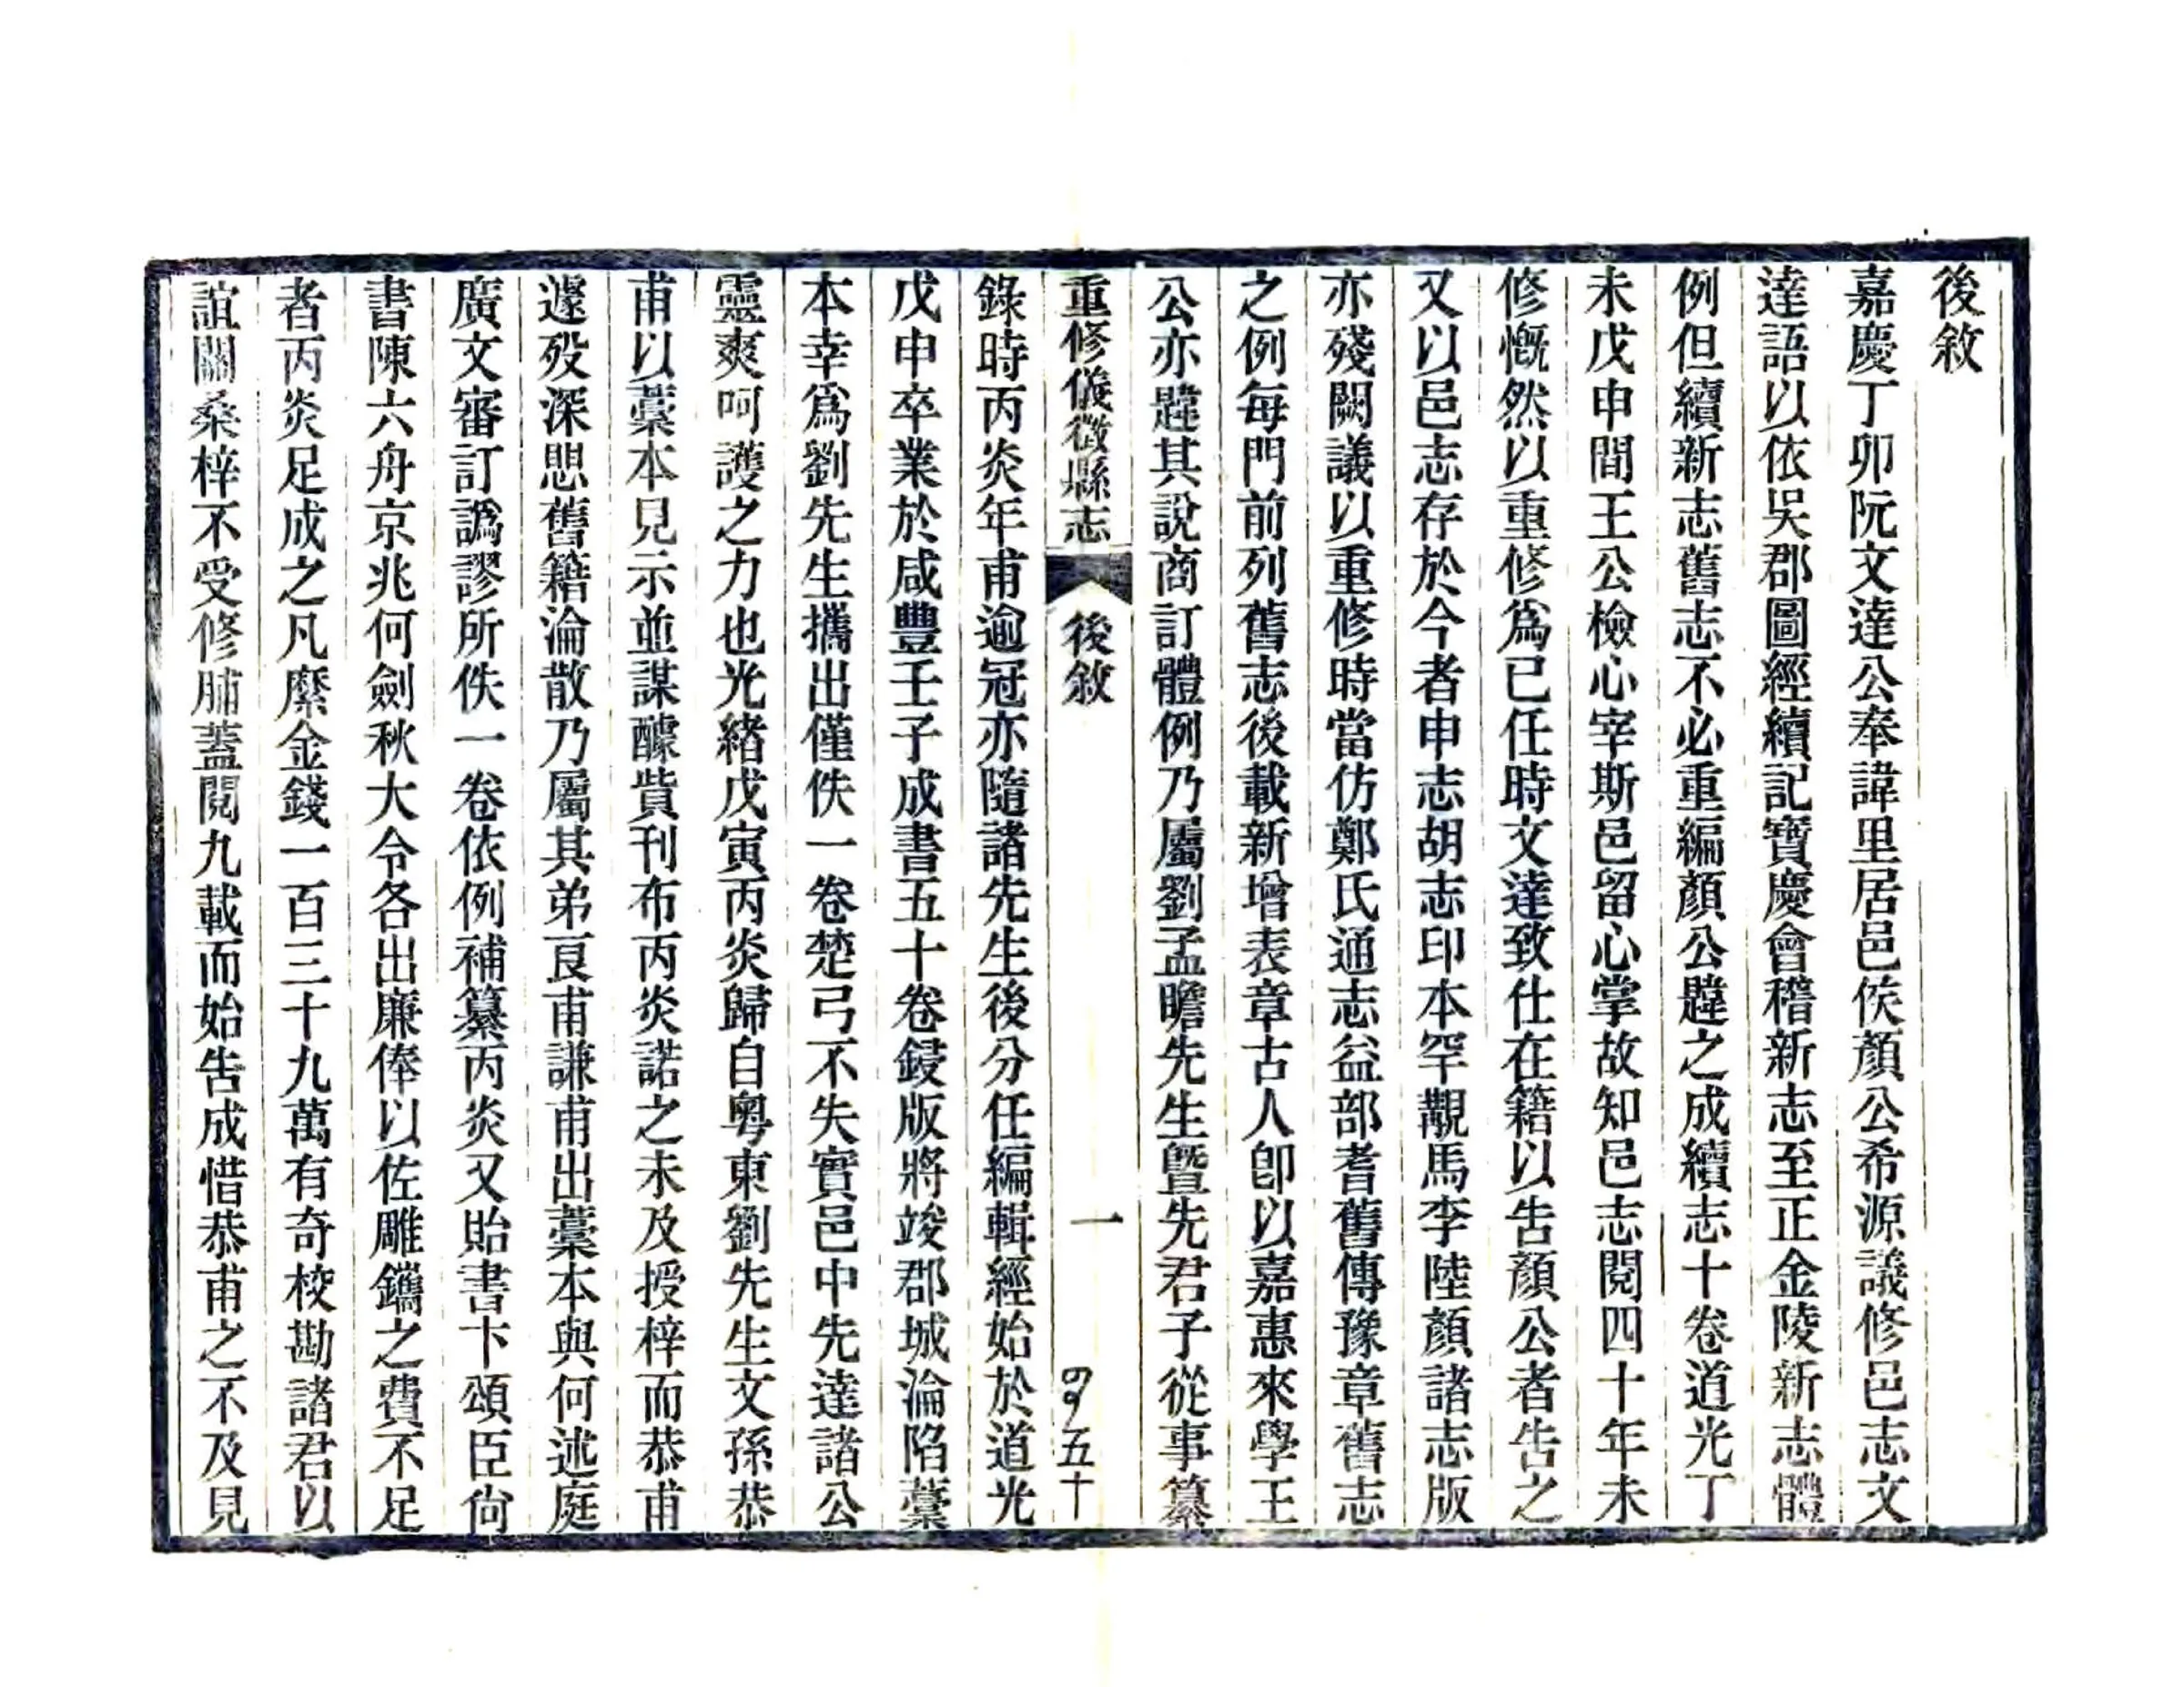 後敘
嘉慶丁卯阮文達公奉諱里居邑侯顏公希源議修邑志文
達語以依吳郡圖經續記寶慶會稽新志至正金陵新志體
例但續新志舊志不必重編顏公韙之成續志十卷道光丁
未戊申間王公檢心宰斯邑留心掌故知邑志閱四十年未
修慨然以重修爲已任時文達致仕在籍以告顏公者告之
又以邑志存於今者申志胡志印本罕覯馬李陸顏諸志版
亦殘闕議以重修時當仿鄭氏通志益部耆舊傳豫章舊志
之例每門前列舊志後載新增表章古人卽以嘉惠來學王
公亦韙其說商訂體例乃屬劉孟瞻先生曁先君子從事纂
重修儀徵縣志 後敘 一 五十
錄時丙炎年甫逾冠亦隨諸先生後分任編輯經始於道光
戊申卒業於咸豐壬子成書五十卷鋟版將竣郡城淪陷藁
本幸爲劉先生攜出僅佚一卷楚弓不失實邑中先達諸公
靈爽呵護之力也光緒戊寅丙炎歸自粵東劉先生文孫恭
甫以藁本見示並謀醵貲刊布丙炎諾之未及授梓而恭甫
遽歿深思舊籍淪散乃屬其弟良甫謙甫出藁本與何述庭
廣文審訂譌謬所佚一卷依例補纂丙炎又貽書卞頌臣尙
書陳六舟京兆何劍秋大令各出廉俸以佐雕鐫之費不足
者丙炎足成之凡縻金錢一百三十九萬有奇校勘諸君以
誼關桑梓不受修脯蓋閱九載而始告成惜恭甫之不及見